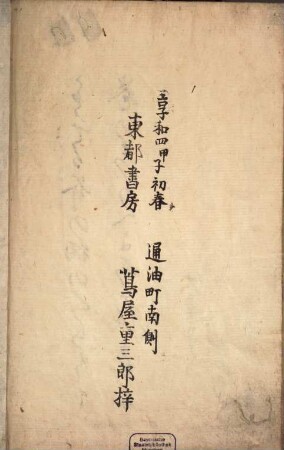 享和四甲子初春
東都書房
通油町南側
蔦屋重三郎梓
Bayerische
Staatsbibliothek